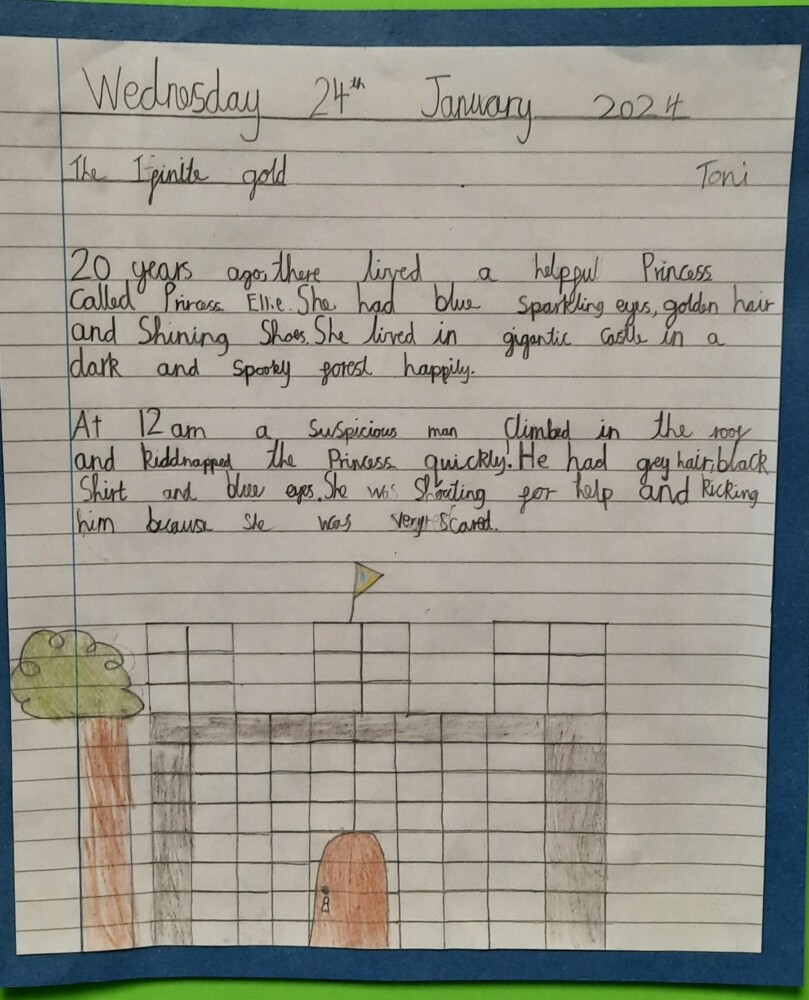 Wednesday 24th January 2024
The Ifinite gold Toni
20 years ago, there lived a helpful Princess
Called Princess Ellie. She had blue sparkling eyes, golden hair
and Shining Shoes. She lived in gigantic Castle in a
dark and spooky forest happily.
At 12am a suspicious man Climbed in the roof
and kiddnapped the Princess quickly! He had grey hair, black
Shirt and blue eyes. She was Shouting for help and kicking
him because she was very scared.